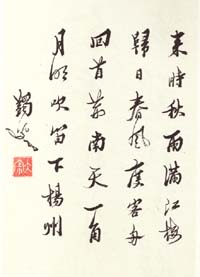 来時秋雨滿江樓
歸日春風度客舟
回首荊南天一角
月明吹笛下楊州